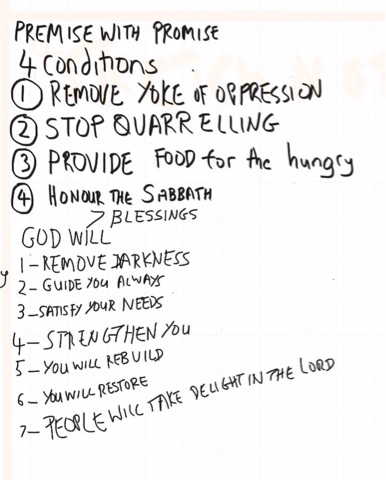 PREMISE WITH PROMISE
4 Conditions
① REMOVE YOKE OF OPPRESSION
② STOP QUARRELLING
③ PROVIDE FOOD for the hungry
④ HONOUR THE SABBATH
> BLESSINGS
GOD WILL
1- REMOVE DARKNESS
2- GUIDE YOU ALWAYS
3- SATISFY YOUR NEEDS
4- STRENGTHEN YOU
5- YOU WILL REBUILD
6- YOU WILL RESTORE
7- PEOPLE WILL TAKE DELIGHT IN THE LORD